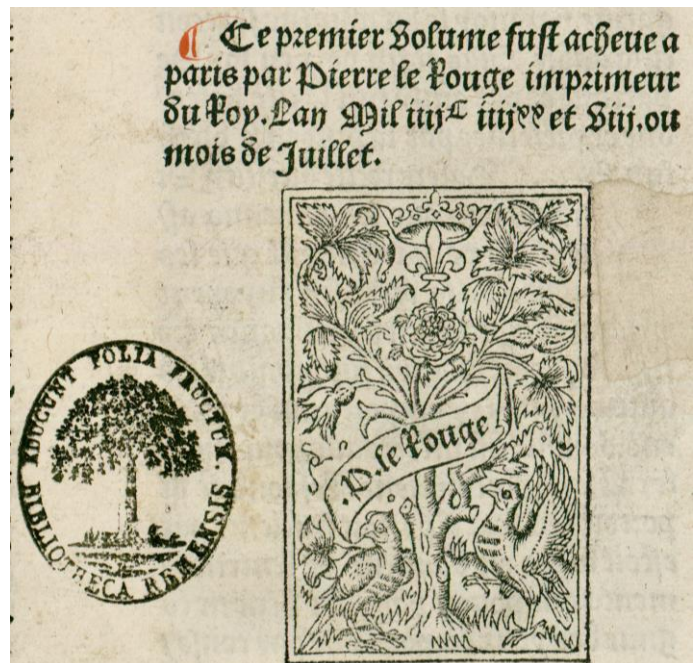 ¶ Ce premier Volume fust acheue a
paris par Pierre le Rouge imprimeur
du Roy. Lan Mil iiijᶜ iiijˣˣ et Viij. ou
mois de Juillet.
.P. le Rouge
ADUCUNT FOLIA FRUCTUM.
BIBLIOTHECA REMENSIS